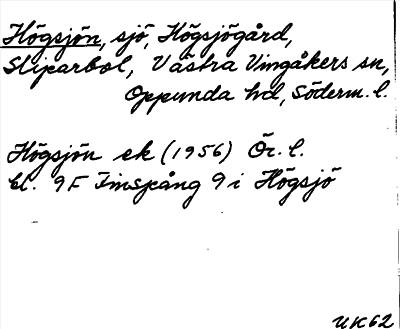 Högsjön, sjö, Högsjögård,
Sliparbol, Västra Vingåkers sn,
Oppunda hd, Söderm. l.
Högsjön ek (1956) Ör. l.
bl. 9F Finspång 9 i Högsjö
UK62